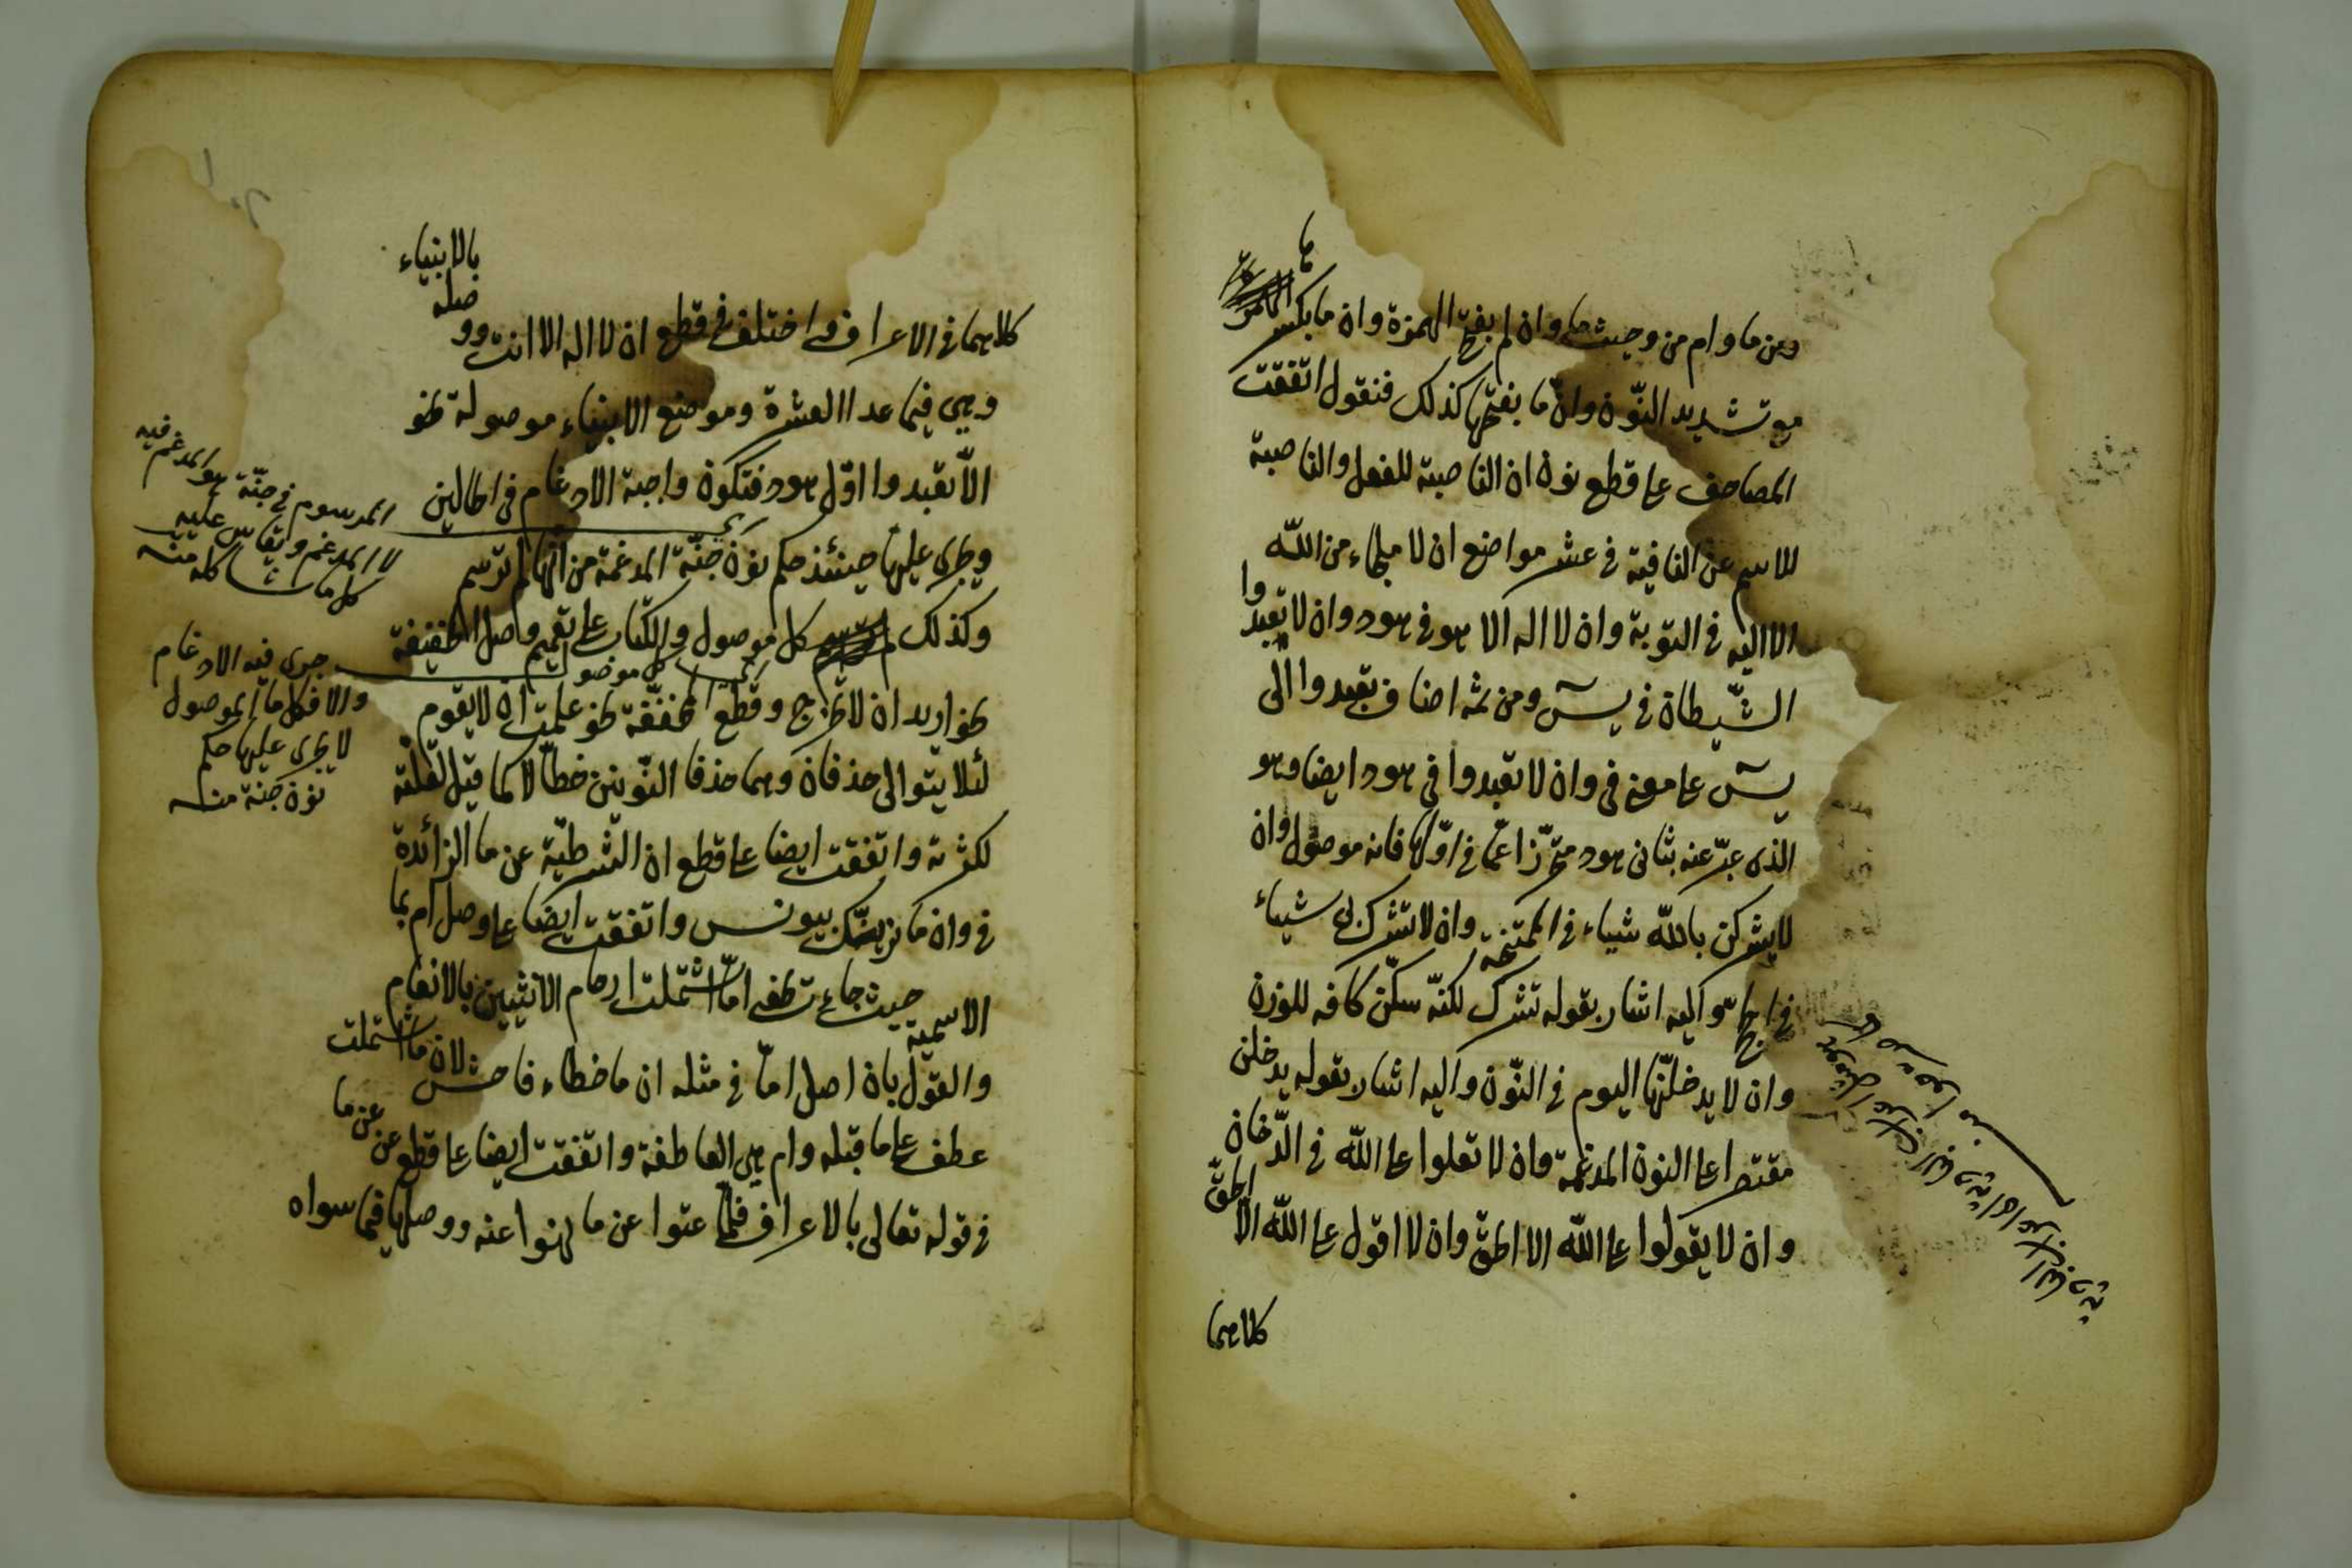 ومن ما وام من وحيث ما وان لم بفتح الهمزة وان ما بكسر
ها
مع تشديد النّون وانّ ما بفتحها كذلك فنقول اتفقت
المصاحف على قطع نون ان الناصبة للفعل والناصبة
للاسم عن النافية في عشر مواضع ان لا ملجاء من اللّه
الا اليه في التوبة وان لا اله الا هو في هود وان لا تعبدوا
الشّيطان في يسۤ ومن ثمه اضاف تعبدوا الى
يسۤ على معنى في وان لا تعبدوا في هود ايضا وهو
الذى عبّر عنه بثانى هود متحرّزا عمّا في اوّلها فانه موصول وان
لا يشركن باللّه شياء في الممتحنة وان لا تشرك بى شياء
في الحج واليه اشار بقوله تشرك لكنّه سكّن كافه للوزن
وان لا يدخلنّها اليوم في النّون واليه اشار بقوله يدخلن
مقتصرا على النون المدغمة وان لا تعلوا على اللّه في الدّخان
وان لا يقولوا على اللّه الا الحقّ وان لا اقول على اللّه الّا الحقّ
كلاهما
كلاهما في الاعراف واختلف في قطع ان لا اله الا انت
بالانبياء
وصله
وهى فيما عدا العشرة وموضع الانبياء موصولة نحو
الّا تعبدوا اوّل هود فتكون واجبة الادغام في الحالين
ويجرى عليها حينئذ حكم نون جنّة المدغمة من انها لم ترسم
وكذلك كل موصول والكتاب على تعميم وصل الخفيفة
كل موصول
نحو اريد ان لا يخرج وقطع المخففة نحو علمت ان لا يقوم
لئلا يتوالى حذفان وهما حذفا النّونين خطّا لا كما قيل لقلّته
لكثرته واتفقت ايضا على قطع ان الشرطيّة عن ما الزائدة
في وان ما نرينّك بيونس واتفقت ايضا على وصل ام بما
الاسمية حيث جاءت نحو امّا اشتملت ارحام الانثيين بالانعام
والقول بان اصل امّا في مثله ان ما خطاء فاحش لان ما اشتملت
عطف على ما قبله وام هى العاطفة واتفقت ايضا على قطع عن عن ما
في قوله تعالى بالاعراف فلمّا عتوا عن ما نهوا عنه ووصلها فيما سواه
المرسوم في جنّة هو المدغم فيه
لا المدغم ويقاس عليه
كل ما شاكله منه
جرى فيه الادغام
والا فكل ما الموصول
لا يجرى عليها حكم
نون جنّة منه